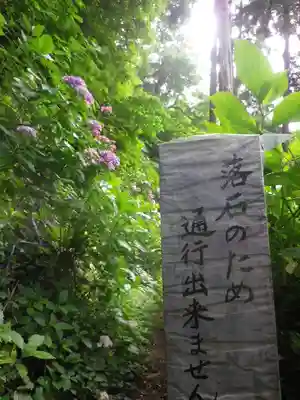 落石のため
通行出来ません